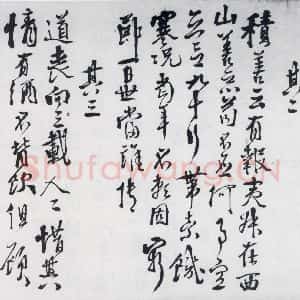 其二
積善云有報夷叔在西
山善惡苟不應何事空
立言九十行帶索饑
寒況當年不賴固窮
節百世當誰傳
其三
道喪向千載人人惜其
情有酒不肯飲但顧
Shufawang.CN